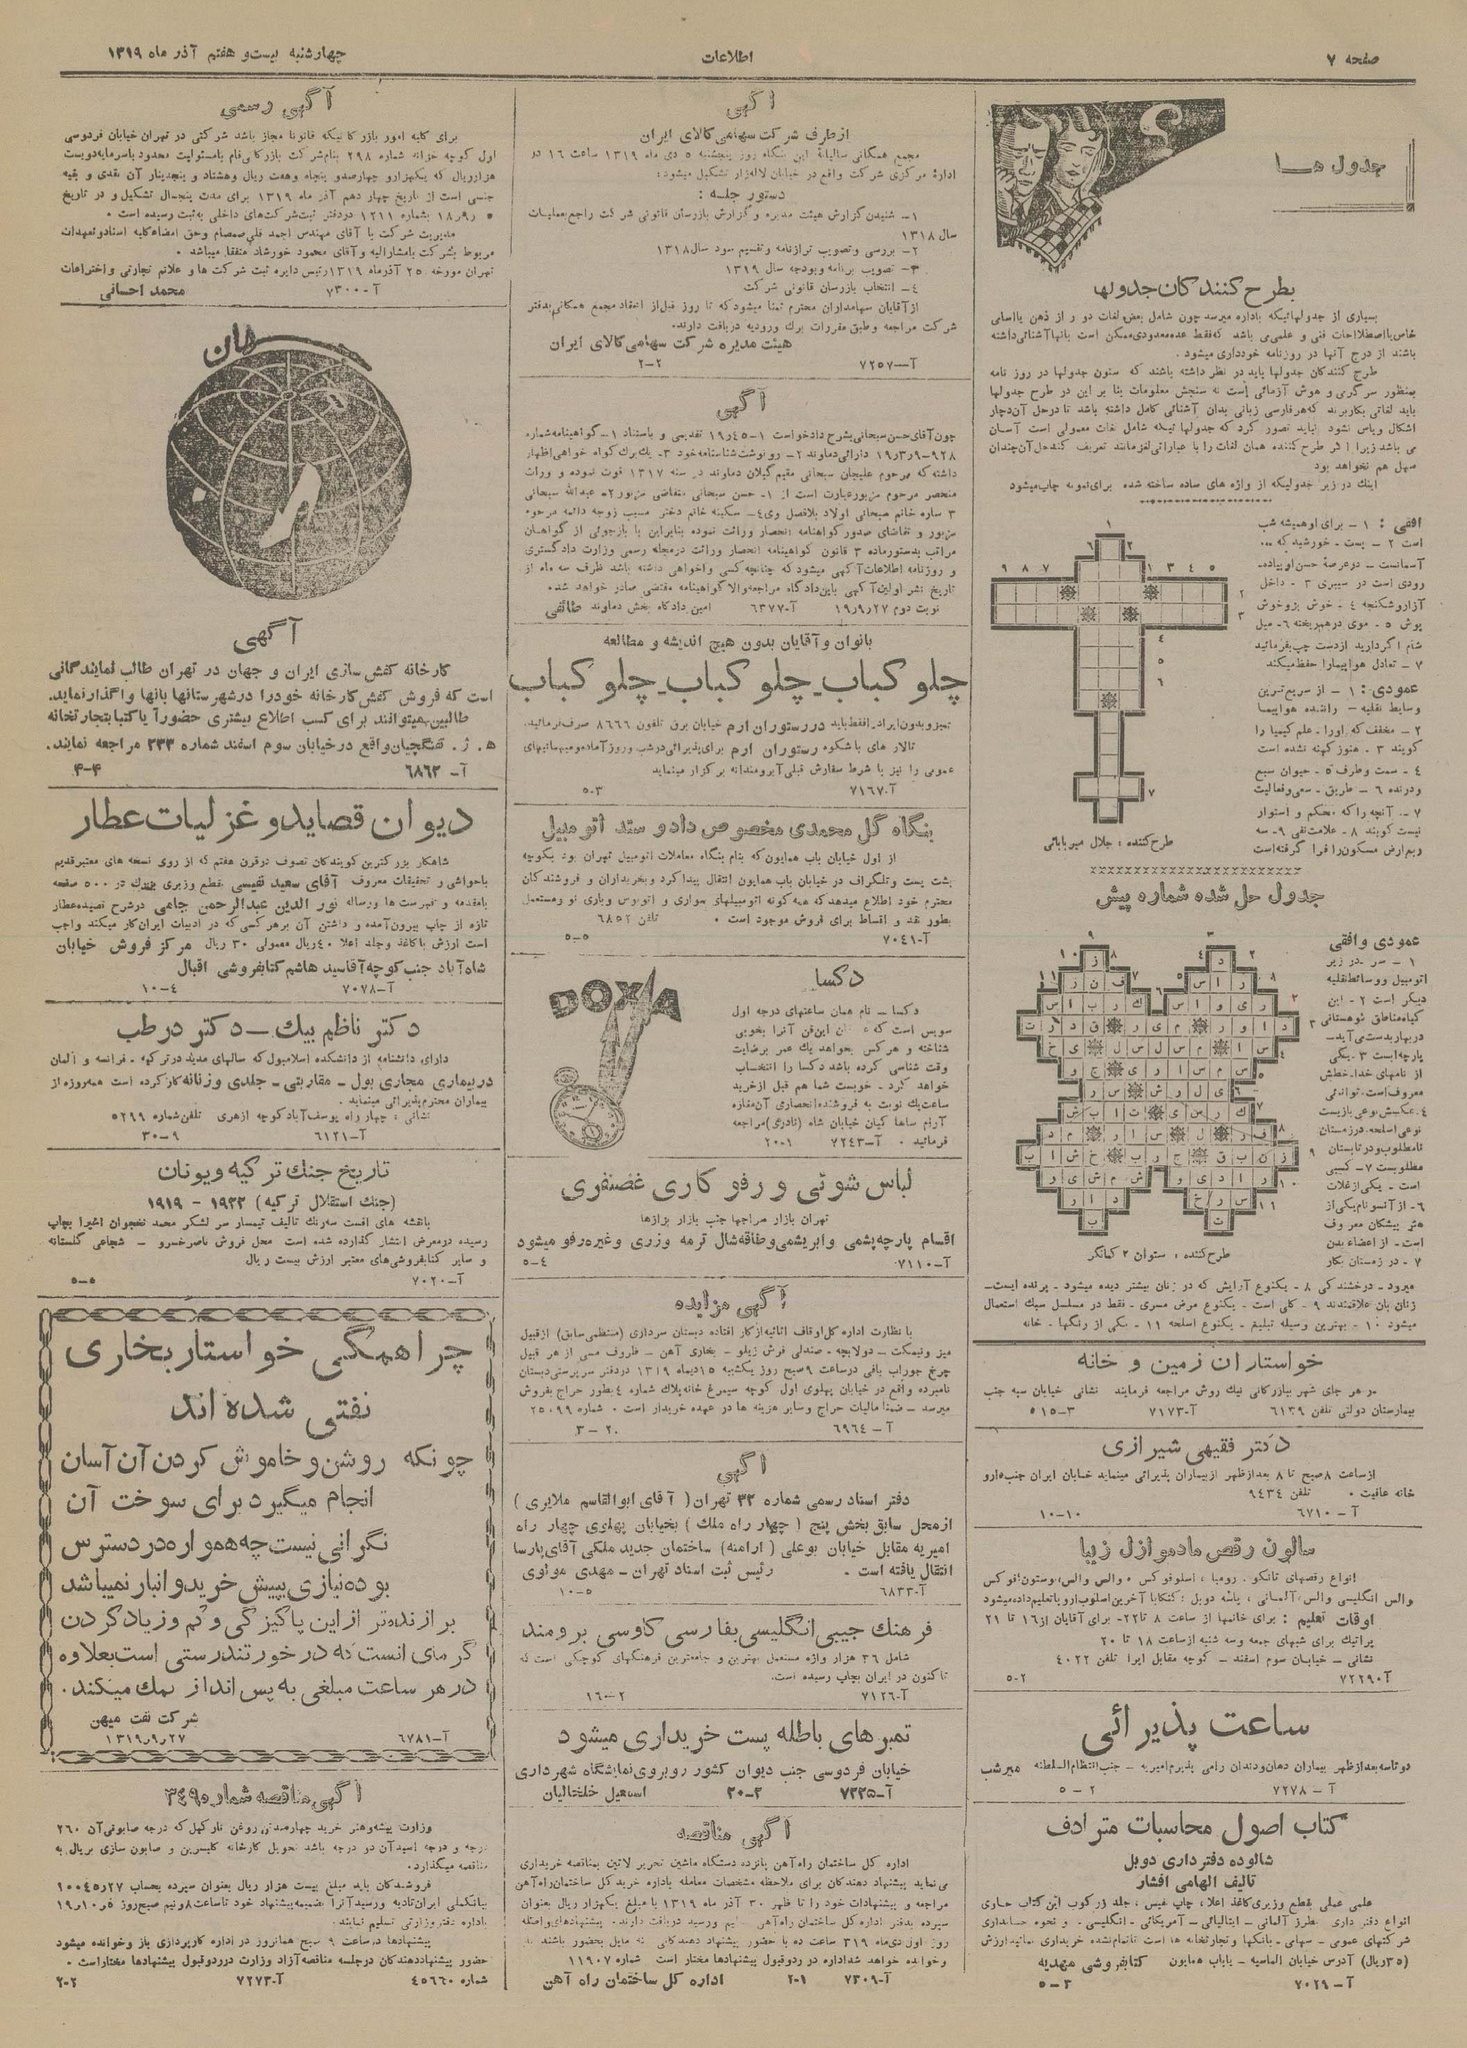 صفحه ۷
اطلاعات
چهارشنبه بیست و هفتم آذر ماه ۱۳۱۹
جدول ها
بطرح کنندگان جدولها
بسیاری از جدولهائیکه باداره میرسد چون شامل بعض لغات دور از ذهن یا اسامی
خاص با اصطلاحات فنی و علمی می باشد که فقط عده معدودی ممکن است بانها آشنائی داشته
باشند از درج آنها در روزنامه خودداری میشود.
طرح کنندگان جدولها باید در نظر داشته باشند که ستون جدولها در روز نامه
بمنظور سرگرمی و هوش آزمائی است نه سنجش معلومات بنا بر این در طرح جدولها
باید لغاتی بکار برند که هر فارسی زبانی بدان آشنائی کامل داشته باشد تا در حل آن دچار
اشکال ویاس نشود نباید تصور کرد که جدولهائیکه شامل لغات معمولی است آسان
می باشد زیرا اگر طرح کننده همان لغات را با عباراتی لغز مانند تعریف کند حل آن چندان
سهل هم نخواهد بود
اینک در زیر جدولیکه از واژه های ساده ساخته شده برای نمونه چاپ میشود
افقی : ۱ – برای او همیشه شب
است ۲ – پست – خورشید که ...
آسمانست – در عرصهٔ حسن او پیاده
رودی است در سیبری ۳ – داخل
آزار و شکنجه ۴ – خوش پز و خوش
پوش ۵ – موی درهم ریخته ۶ – میل
شام اگر دارید از دست چپ بفرمائید
۷ – تعادل هواپیما را حفظ میکند
عمودی : ۱ – از سریع ترین
وسایط نقلیه – راننده هواپیما
۲ – مخفف که او را – علم کیمیا را
گویند ۳ – هنوز کهنه نشده است
۴ – سمت و طرف ۵ – حیوان سبع
و درنده ۶ – طریق – سعی و فعالیت
۷ – آنچه را که محکم و استوار
نیست گویند ۸ – علامت نفی ۹ – سه
ربع ارض مسکون را فرا گرفته است
طرح کننده ، جلال میر بابائی
جدول حل شده شماره پیش
عمودی و افقی
۱ – سر – در زیر
اتومبیل و وسائط نقلیه
دیگر است ۲ – این
گیاه مناطق کوهستانی
در بهار بدست می آید –
پارچه ایست ۳ – یکی
از نامهای خدا – خطش
معروف است – توانائی
نوعی اسلحه – در زمستان
نامطلوب و در تابستان
مطلوبست ۷ – کسبی
است – یکی از غلات
هنر پیشگان معروف
است – از اعضاء بدن
۷ – در زمستان بکار
طرح کننده ، ستوان ۲ کمانگر
میرود – درخشندگی ۸ – یکنوع آرایش که در زنان بیشتر دیده میشود – پرنده ایست–
زنان بآن علاقمندند ۹ – کلی است – یکنوع مرض مسری – فقط در مسلسل سبک استعمال
میشود ۱۰ – بهترین وسیله تبلیغ – یکنوع اسلحه ۱۱ – یکی از رنگها – خانه
خواستاران زمین و خانه
در هر جای شهر ببازرگانی نیک روش مراجعه فرمایند نشانی خیابان سپه جنب
بیمارستان دولتی تلفن ۶۱۳۹ آ–۷۱۷۳ ۳–۵۱۵
دکتر فقیهی شیرازی
از ساعت ۸ صبح تا ۸ بعد از ظهر از بیماران پذیرائی مینماید خیابان ایران جنب دارو
خانه عافیت • تلفن ۹۴۳۴
آ – ۶۷۱۰ ۱۰–۱۰
سالون رقص مادموازل زیبا
انواع رقصهای تانگو – رومبا ، اسلوفوکس ، والس والس، بوستون فوکس
والس انگلیسی والس، آلمانی ، پاسه دوبل ؛ کنکابا آخرین اسلوب اروپا تعلیم داده میشود
اوقات تعلیم : برای خانمها از ساعت ۸ تا ۲۲– برای آقایان از ۱۶ تا ۲۱
پراتیک برای شبهای جمعه وسه شنبه از ساعت ۱۸ تا ۲۰
نشانی – خیابان سوم اسفند – کوچه مقابل اپرا تلفن ۴۰۲۲
آ–۷۲۲۹ ۲–۵
ساعت پذیرائی
دو تا سه بعد از ظهر بیماران دهان و دندان را می پذیرم امیریه – جنب انتظام السلطنه میرشب
آ – ۷۲۷۸ ۲ – ۵
کتاب اصول محاسبات مترادف
شالوده دفترداری دوبل
تالیف الهامی افشار
علمی عملی بقطع وزیری کاغذ اعلا، چاپ نفیس ، جلد زرکوب این کتاب حاوی
انواع دفتر داری بطرز آلمانی – ایتالیائی – آمریکائی – انگلیسی – و نحوه حسابداری
شرکتهای عمومی – سهامی – بانکها و تجارتخانه ها است تا تمام نشده خریداری نمائید ارزش
(۳۵ ریال) آدرس خیابان الماسیه – باباب همایون کتابفروشی مهدیه
آ – ۷۰۲۹ ۳ – ۵
آگهی
از طرف شرکت سهامی کالای ایران
مجمع همگانی سالیانهٔ این بنگاه روز پنجشنبه ۵ دی ماه ۱۳۱۹ ساعت ۱۶ در
ادارهٔ مرکزی شرکت واقع در خیابان لاله زار تشکیل میشود:
دستور جلسه :
۱– شنیدن گزارش هیئت مدیره و گزارش بازرسان قانونی شرکت راجع بعملیات
سال ۱۳۱۸
۲– بررسی و تصویب ترازنامه و تقسیم سود سال ۱۳۱۸
۳– تصویب برنامه و بودجه سال ۱۳۱۹
۴– انتخاب بازرسان قانونی شرکت
از آقایان سهامداران محترم تمنا میشود که تا روز قبل از انعقاد مجمع همگانی بدفتر
شرکت مراجعه و طبق مقررات برک ورودیه دریافت دارند.
هیئت مدیره شرکت سهامی کالای ایران
آ–۷۲۵۷ ۲–۲
آگهی
چون آقای حسن سبحانی بشرح دادخواست ۱–۱۹٫۴۵ تقدیمی و باستناد ۱– گواهینامه شماره
۹۲۸–۱۹٫۳٫۹ دارائی دماوند ۲– رونوشت شناسنامه خود ۳– یک برک گواه خواهی اظهار
داشته که مرحوم علیجان سبحانی مقیم گیلان دماوند در سنه ۱۳۱۷ فوت نموده و وراث
منحصر مرحوم مزبور عبارت است از ۱– حسن سبحانی متقاضی مزبور ۲– عبدالله سبحانی
۳ ساره خانم سبحانی اولاد بلافصل وی ۴– سکینه خانم دختر مسیب زوجه دائمه مرحوم
مزبور و تقاضای صدور گواهینامه انحصار وراثت نموده بنابراین با بازجوئی از گواهان
مراتب بدستور ماده ۳ قانون گواهینامه انحصار وراثت در مجله رسمی وزارت دادگستری
و روزنامه اطلاعات آگهی میشود که چنانچه کسی واخواهی داشته باشد ظرف سه ماه از
تاریخ نشر اولین آگهی باین دادگاه مراجعه والا گواهینامه مقتضی صادر خواهد شد.
نوبت دوم ۱۹٫۹٫۲۷ آ–۶۳۷۷ امین دادگاه بخش دماوند طالقی
بانوان و آقایان بدون هیچ اندیشه و مطالعه
چلو کباب – چلو کباب – چلو کباب
تمیز و بدون ایراد را فقط باید در رستوران ارم خیابان برق تلفون ۸۶۶۶ صرف فرمائید.
تالار های با شکوه رستوران ارم برای پذیرائی در شب و روز آماده و میهمانیهای
عمومی را نیز با شرط سفارش قبلی آبرومندانه برگزار مینماید
آ–۷۱۶۷ ۳–۵
بنگاه گل محمدی مخصوص داد و ستد اتومبیل
از اول خیابان باب همایون که بنام بنگاه معاملات اتومبیل تهران بود بکوچه
پشت پست و تلگراف در خیابان باب همایون انتقال پیدا کرد و بخریداران و فروشندگان
محترم خود اطلاع میدهد که همه گونه اتومبیلهای سواری و اتوبوس وباری نو ومستعمل
بطور نقد و اقساط برای فروش موجود است • تلفن ۶۸۵۲
آ–۷۰۴۱ ۵–۵
دکسا
DOXA
دکسا – نام همان ساعتهای درجه اول
سویس است که این فن آنرا بخوبی
شناخته و هر کس بخواهد یک عمر برضایت
وقت شناسی کرده باشد دکسا را انتخاب
خواهد کرد . خوبست شما هم قبل از خرید
ساعت یک نوبت به فروشنده انحصاری آن مغازه
آرام ساها کیان خیابان شاه (نادری) مراجعه
فرمائید • آ–۷۲۴۳ ۱–۲۰
لباس شوئی و رفو کاری غضنفری
تهران بازار سراجها جنب بازار بزازها
اقسام پارچه پشمی و ابریشمی و طاقه شال ترمه وزری وغیره رفو میشود
آ–۷۱۱۰ ۴–۵
آگهی مزایده
با نظارت اداره کل اوقاف اثاثیه از کار افتاده دبستان سرداری (منتظمی سابق) از قبیل
میز و نیمکت – دولابچه – صندلی فرش زیلو – بخاری آهن – ظروف مسی از هر قبیل
چرخ جوراب بافی در ساعت ۹ صبح روز یکشنبه ۱۵ دیماه ۱۳۱۹ در دفتر سرپرستی دبستان
نامبرده واقع در خیابان پهلوی اول کوچه سیمرغ خانه پلاک شماره ۴ بطور حراج بفروش
میرسد – ضمنا مالیات حراج و سایر هزینه ها در عهده خریدار است • شماره ۲۵۰۹۹
آ – ۶۹۶۴ ۲۰ – ۳
آگهی
دفتر اسناد رسمی شماره ۳۳ تهران ( آقای ابوالقاسم ملایری )
از محل سابق بخش پنج ( چهار راه ملک ) بخیابان پهلوی چهار راه
امیریه مقابل خیابان بوعلی ( ارامنه) ساختمان جدید ملکی آقای پارسا
انتقال یافته است . رئیس ثبت اسناد تهران – مهدی موثوی
آ–۶۸۳۳ ۵–۱۰
فرهنك جیبی انگلیسی بفارسی کاوسی برومند
شامل ۳۶ هزار واژه مستعمل بهترین و جامعترین فرهنگهای کوچکی است که
تاکنون در ایران بچاپ رسیده است.
آ–۷۱۲۶ ۲–۱۶
تمبرهای باطله پست خریداری میشود
خیابان فردوسی جنب دیوان کشور روبروی نمایشگاه شهرداری
آ–۷۲۲۵ ۲–۲۰ اسمعیل خلخالیان
آگهی مناقصه
اداره کل ساختمان راه آهن پانزده دستگاه ماشین تحریر لاتین بمناقصه خریداری
می نماید پیشنهاد دهندگان برای ملاحظه مشخصات معامله باداره خرید کل ساختمان راه آهن
مراجعه و پیشنهادات خود را تا ظهر ۳۰ آذر ماه ۱۳۱۹ با مبلغ یکهزار ریال بعنوان
سپرده بدفتر اداره کل ساختمان راه آهن تسلیم ورسید دریافت دارند. پیشنهادهای واصله
روز اول دی ماه ۳۱۹ ساعت ده با حضور پیشنهاد دهندگانی که مایل بحضور باشند باز
وخوانده خواهد شد اداره در رد وقبول پیشنهادها مختار است شماره ۱۱۹۰۷
آ–۷۳۰۹ ۱–۲ اداره کل ساختمان راه آهن
آگهی رسمی
برای کلیه امور بازرگانیکه قانونا مجاز باشد شرکتی در تهران خیابان فردوسی
اول کوچه خزانه شماره ۲۹۸ بنام شرکت بازرگانی فام با مسئولیت محدود با سرمایه دویست
هزار ریال که یکهزار و چهارصد و پنجاه وهفت ریال وهشتاد و پنجدینار آن نقدی و بقیه
جنسی است از تاریخ چهاردهم آذر ماه ۱۳۱۹ برای مدت پنجسال تشکیل و در تاریخ
۱۸٫۹٫۵ بشماره ۱۲۱۱ در دفتر ثبت شرکت های داخلی به ثبت رسیده است •
مدیریت شرکت با آقای مهندس احمد قلی صمصام وحق امضاء کلیه اسناد و تعهدات
مربوط بشرکت با مشارالیه وآقای محمود خورشاد متفقا میباشد •
تهران مورخه ۲۵ آذر ماه ۱۳۱۹ رئیس دایره ثبت شرکت ها و علائم تجارتی و اختراعات
آ–۷۳۰۰ محمد احسانی
آگهی
کارخانه کفش سازی ایران و جهان در تهران طالب نمایندگانی
است که فروش کفش کارخانه خود را در شهرستانها بانها واگذار نماید.
طالبین میتوانند برای کسب اطلاع بیشتری حضوراً یا کتباً بتجارتخانه
ه . ژ . تفنگچیان واقع در خیابان سوم اسفند شماره ۲۳۳ مراجعه نمایند.
آ– ۶۸۶۳ ۴–۴
دیوان قصاید و غزلیات عطار
شاهکار بزرگترین گویندگان تصوف در قرن هفتم که از روی نسخه های معتبر قدیم
با حواشی و تحقیقات معروف آقای سعید نفیسی بقطع وزیری بزرگ در ۵۰۰ صفحه
با مقدمه و فهرست ها و رساله نور الدین عبدالرحمن جامی در شرح قصیده عطار
تازه از چاپ بیرون آمده و داشتن آن بر هر کسی که در ادبیات ایران کار میکند واجب
است ارزش با کاغذ و جلد اعلا ۴۰ ریال معمولی ۳۰ ریال مرکز فروش خیابان
شاه آباد جنب کوچه آقا سید هاشم کتابفروشی اقبال
آ–۷۰۷۸ ۴–۱۰
دکتر ناظم بیک – دکتر در طب
دارای دانشنامه از دانشکده اسلامبول که سالهای مدید در ترکیه – فرانسه و آلمان
در بیماری مجاری بول – مقاربتی – جلدی و زنانه کار کرده است همه روزه از
بیماران محترم پذیرائی مینماید .
نشانی ، چهار راه یوسف آباد کوچه ازهری تلفن شماره ۵۲۹۹
آ–۶۱۲۱ ۹–۳۰
تاریخ جنك ترکیه و یونان
(جنك استقلال ترکیه) ۱۹۲۲ – ۱۹۱۹
با نقشه های افست سه رنك تالیف تیمسار سر لشگر محمد نخجوان اخیرا بچاپ
رسیده در معرض انتشار گذارده شده است محل فروش ناصر خسرو – شجاعی گلستانه
و سایر کتابفروشی های معتبر ارزش بیست ریال
آ–۷۰۲۰ ۵–۵
چرا همگی خواستار بخاری
نفتی شده اند
چونکه روشن و خاموش کردن آن آسان
انجام میگیرد برای سوخت آن
نگرانی نیست چه همواره در دسترس
بوده نیازی بپیش خرید و انبار نمیباشد
برازنده تر از این پاکیزگی و کم و زیاد کردن
گرمای انست که در خور تندرستی است بعلاوه
در هر ساعت مبلغی به پس انداز کمك میکند.
شرکت نفت میهن
آ–۶۷۸۱ ۱۳۱۹٫۹٫۲۷
آگهی مناقصه شماره ۳۴۹۰
وزارت پیشه وهنر خرید چهارصد تن روغن نارگیل که درجه صابونی آن ۲۶۰
درجه و درجه اسید آن دو درجه باشد تحویل کارخانه گلیسرین و صابون سازی بریال به
مناقصه میگذارد.
فروشندگان باید مبلغ بیست هزار ریال بعنوان سپرده بحساب ۱۰۰۴۵٫۲۷
ببانک ملی ایران تادیه ورسید آنرا ضمیمه پیشنهاد خود تا ساعت ۸ ونیم صبح روز ۱۹٫۱۰٫۶
باداره دفتر وزارتی تسلیم نمایند.
پیشنهادها در ساعت ۹ صبح همانروز در اداره کارپردازی باز وخوانده میشود
حضور پیشنهاد دهندگان در جلسه مناقصه آزاد وزارت در رد وقبول پیشنهادها مختار است •
شماره ۴۵۶۶۰ آ–۷۲۷۳ ۲–۲